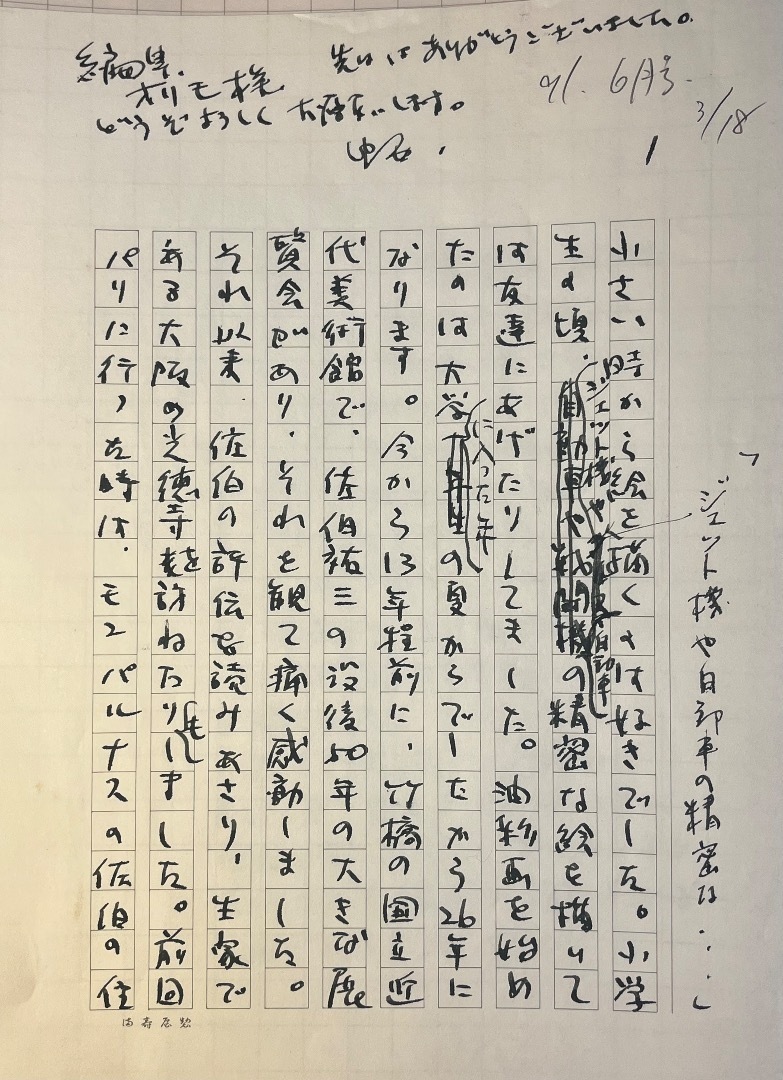 編集
オリモ様
先日はありがとうございました。
どうぞよろしくお願いします。
91. 6月号.
3/18
1
「ジェット機や自動車の精密な・・・」
小さい時から絵を描くのは好きでした。小学
生の頃、ジェット機や自動車の精密な絵を描いて
は友達にあげたりしてました。油彩画を始め
たのは大学に入った年の夏からでしたから26年に
なります。今から13年程前に、竹橋の国立近
代美術館で、佐伯祐三の没後50年の大きな展
覧会があり、それを観て痛く感動しました。
それ以来、佐伯の評伝を読みあさり、生家で
ある大阪の光徳寺を訪ねたりもしました。前回
パリに行った時は、モンパルナスの佐伯の住
満寿屋製